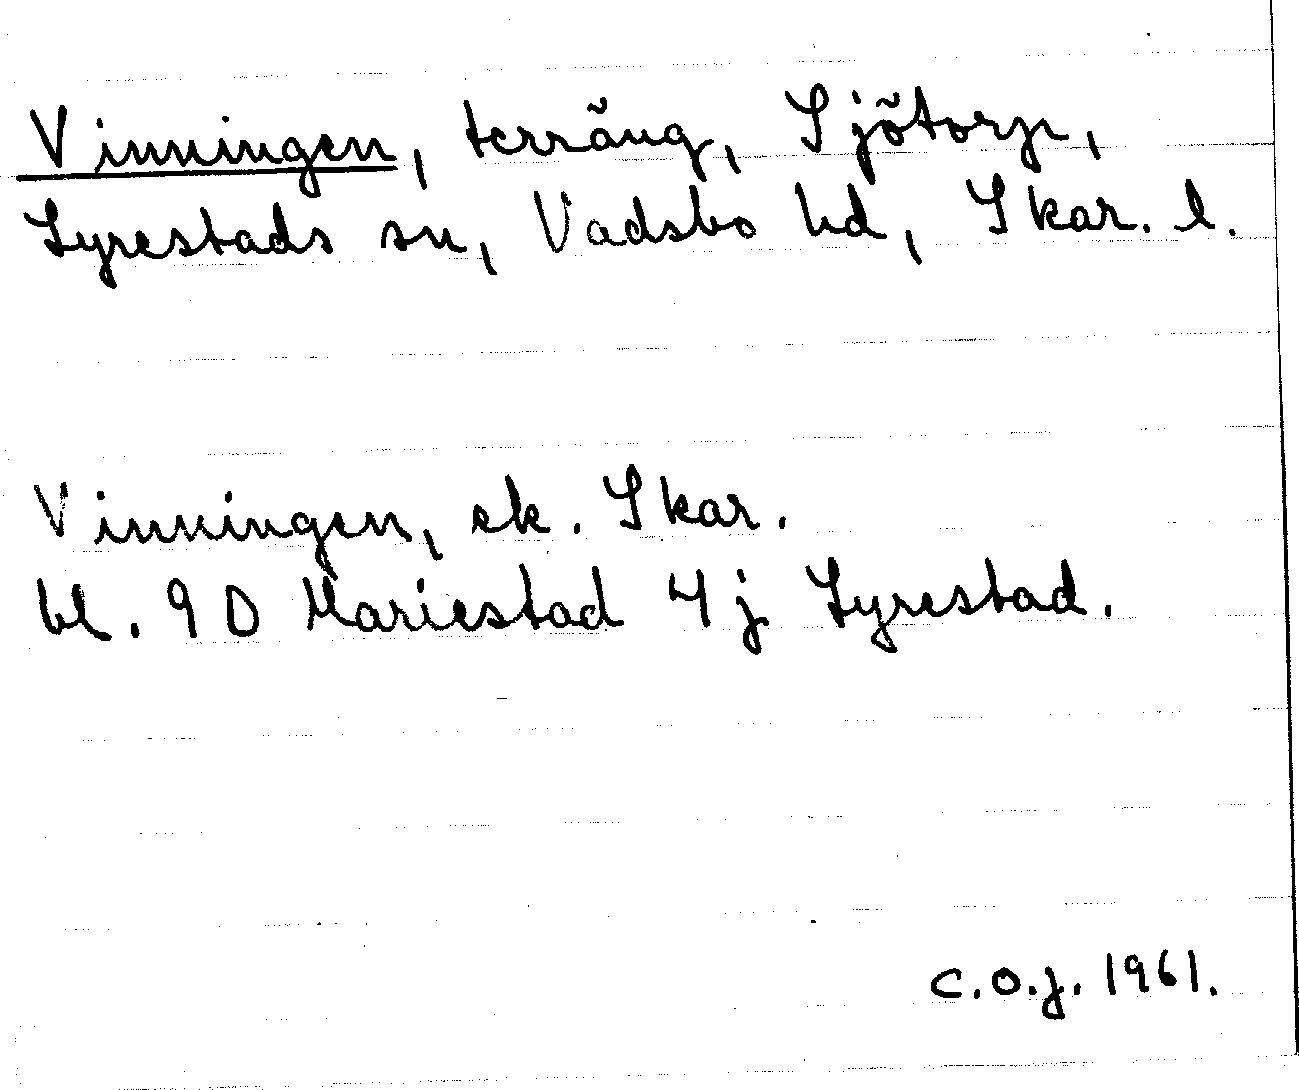 Vinningen, terräng, Sjötorp,
Lyrestads sn, Vadsbo hd, Skar. l.
Vinningen, ek. Skar.
bl. 9 D Mariestad 4 j Lyrestad.
C.O.J. 1961.